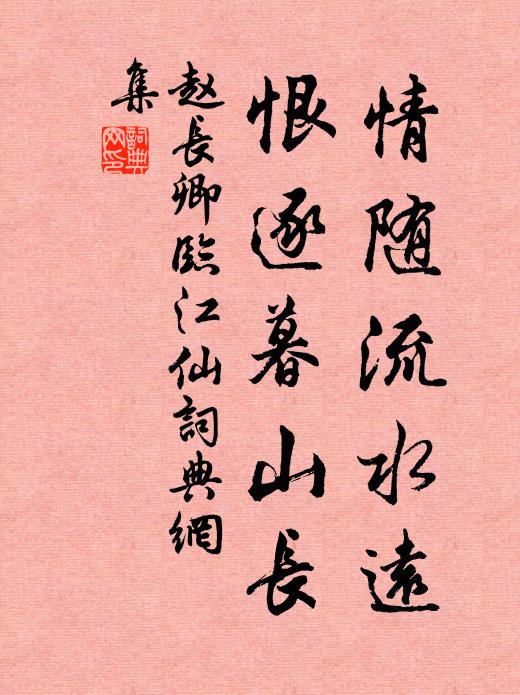 情随流水遠
恨逐暮山長
赵長卿臨江仙詞典網
集
詞典
网印